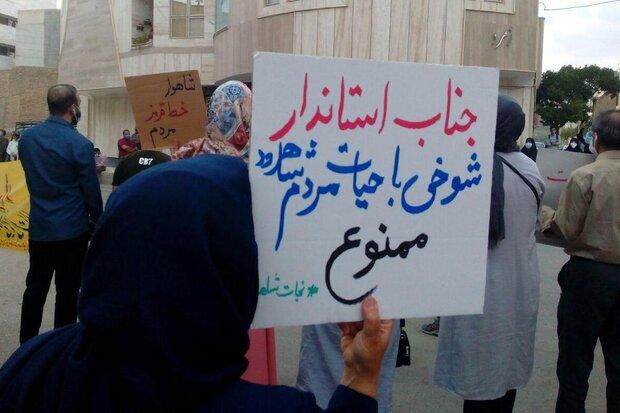 جناب استاندار
شوخی با حیات مردم شاهرود
ممنوع
#نجات_شاه
شاهوار
خط قرمز
مردم
CR7